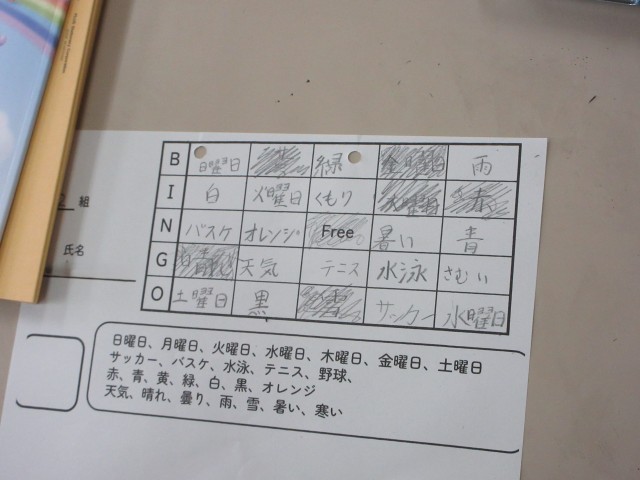 B 日曜日 緑 金曜日 雨
I 白 火曜日 くもり 木曜日 赤
N バスケ オレンジ Free 暑い 青
G 天気 テニス 水泳 さむい
O 土曜日 黒 雪 サッカー 水曜日
組
氏名
日曜日、月曜日、火曜日、水曜日、木曜日、金曜日、土曜日
サッカー、バスケ、水泳、テニス、野球、
赤、青、黄、緑、白、黒、オレンジ
天気、晴れ、曇り、雨、雪、暑い、寒い